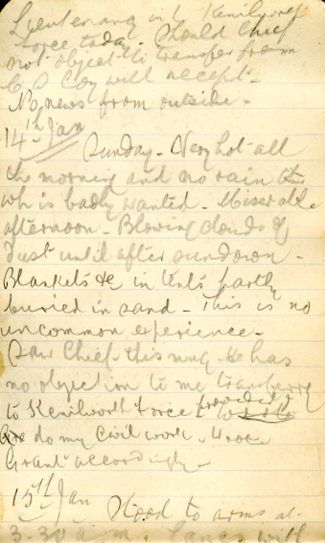 Lieutenancy in Kenilworth
Force today. Should Chief
not object to transfer from
C S Coy will accept.
No news from outside.
14th Jan
Sunday. Very hot all
the morning and no rain
wh is badly wanted. Miserable
afternoon. Blowing clouds of
dust until after sundown.
Blankets &c in tents partly
buried in sand. This is no
uncommon experience.
Saw Chief this mng. He has
no objection to me transferring
to Kenilworth Force provided I
do my Civil work. Wrote
Grant accordingly.
15th Jan
Stood to arms at
3-30 a.m. Lancs with